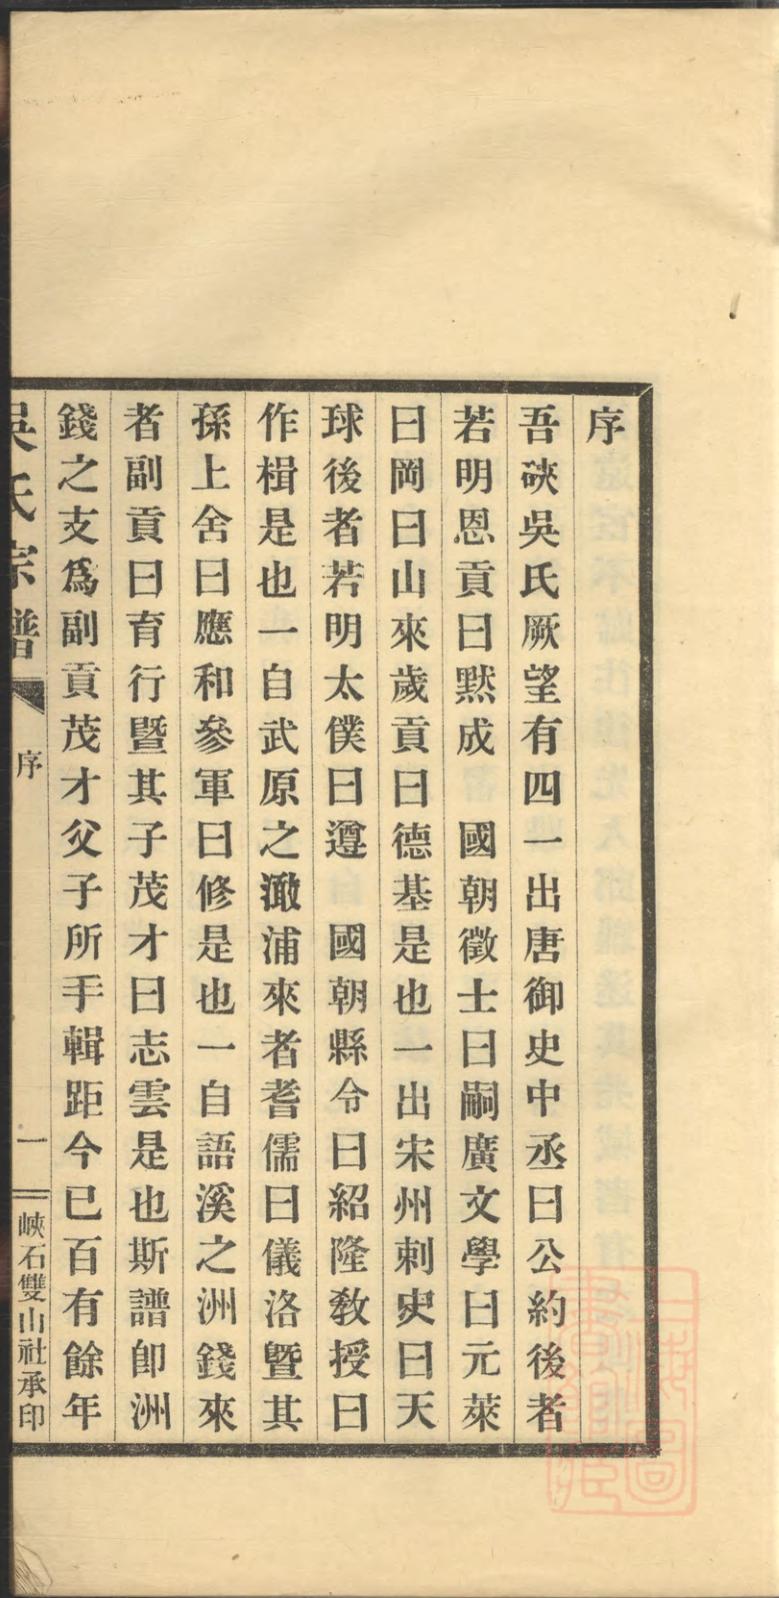 序
吾硤吳氏厥望有四一出唐御史中丞曰公約後者
若明恩貢曰默成　國朝徵士曰嗣廣文學曰元萊
曰岡曰山來歲貢曰德基是也一出宋州刺史曰天
球後者若明太僕曰遵　國朝縣令曰紹隆教授曰
作楫是也一自武原之澉浦來者耆儒曰儀洛暨其
孫上舍曰應和參軍曰修是也一自語溪之洲錢來
者副貢曰育行暨其子茂才曰志雲是也斯譜卽洲
錢之支爲副貢茂才父子所手輯距今已百有餘年
吳氏宗譜
序
一
峽石雙山社承印